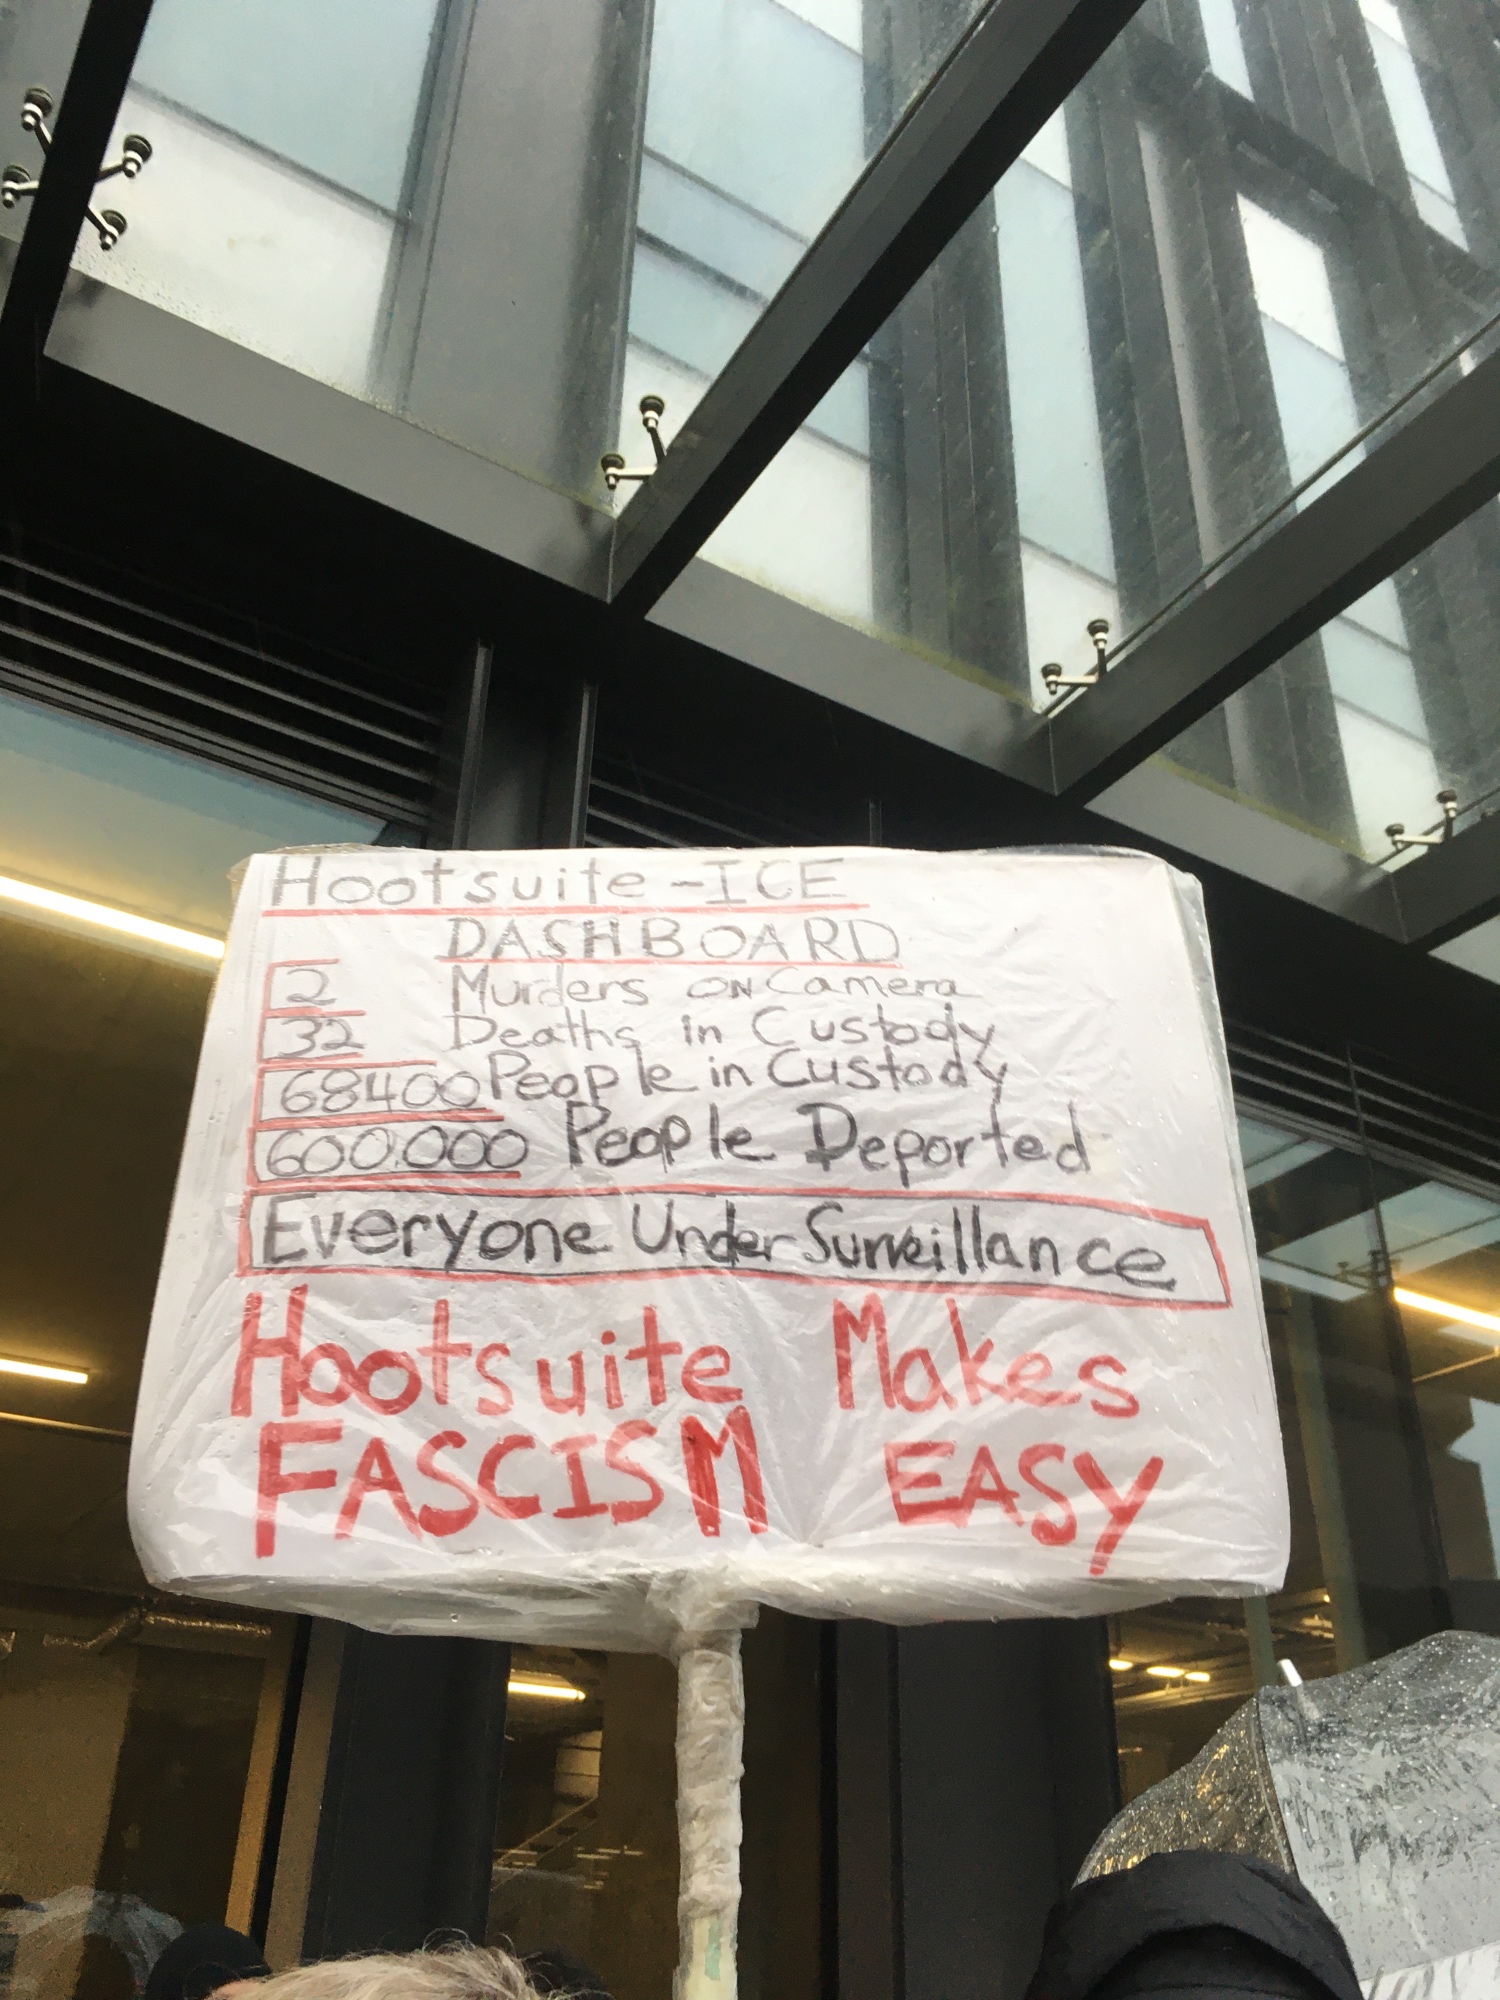 Hootsuite - ICE
DASHBOARD
2 Murders ON Camera
32 Deaths in Custody
68400 People in Custody
600.000 People Deported
Everyone Under Surveillance
Hootsuite Makes
FASCISM EASY